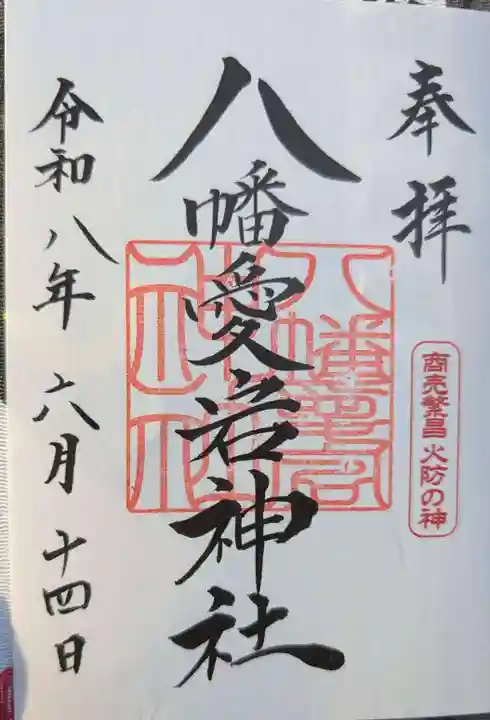 奉拝
商売繁昌 火防の神
八幡愛宕神社
令和八年 六月 十四日